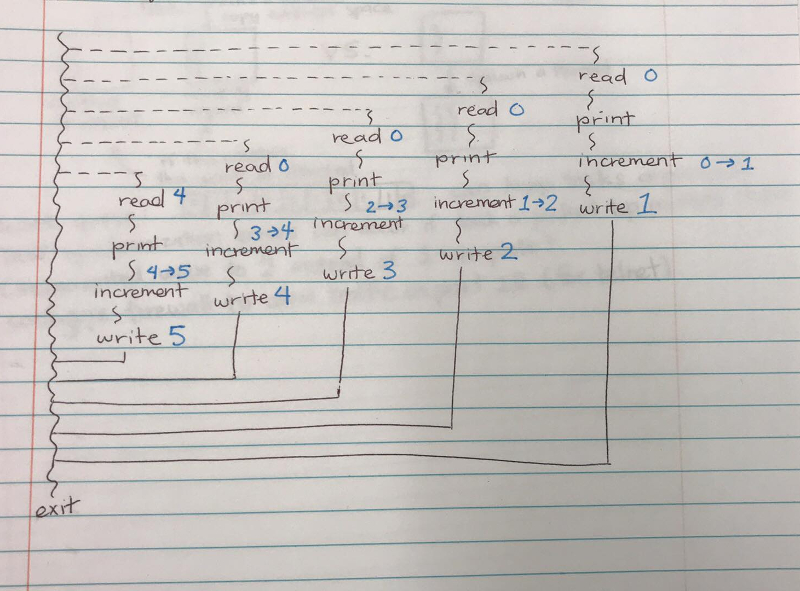 read 0
print
increment 0→1
write 1
read 0
print
increment 1→2
write 2
read 0
print
2→3
increment
write 3
read 0
print
3→4
increment
write 4
read 4
print
4→5
increment
write 5
exit